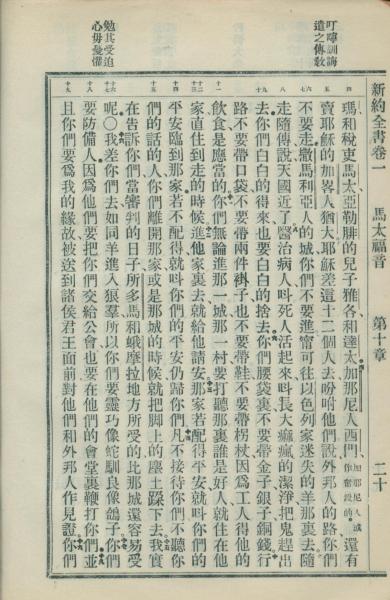 新約全書卷一 馬太福音 第十章 二十
叮嚀訓誨
遣之傳敎
勉其受迫
心毋憂懼
四 瑪和稅吏馬太亞勒腓的兒子雅各和達太加那尼人西門加那尼人或作奮銳的還有
五 賣耶穌的加畧人猶大耶穌差這十二個人去吩咐他們說外邦人的路你們
六七 不要走撒馬利亞人的城你們不要進寧可往以色列家迷失的羊那裏去隨
八 走隨傳說天國近了醫治病人呌死人活起來呌長大痲瘋的潔淨把鬼趕出
九十 去你們白白的得來也要白白的捨去你們腰袋裏不要帶金子銀子銅錢行
路不要帶口袋不要帶兩件褂子也不要帶鞋不要帶柺杖因爲工人得他的
十一 飮食是應當的你們無論進那一城那一村要打聽那裏誰是好人就住在他
十二十三 家直住到走的時候進他家裏去就給他請安那家若配得平安就呌你們的
十四 平安臨到那家若不配得就呌你們的平安仍歸你們凡不接待你們不聽你
十五 們的話的人你們離開那家或是那城的時候就把脚上的塵土跺下去我實
在告訴你們當審判的日子所多馬和蛾摩拉地方所受的比那城還容易受
十六十七 呢〇我差你們去如同羊進入狼羣所以你們要靈巧像蛇馴良像鴿子你們
十八 要防備人因爲他們要把你們交給公會也要在他們的會堂裏鞭打你們並
十九 且你們要爲我的緣故被送到諸侯君王面前對他們和外邦人作見證你們